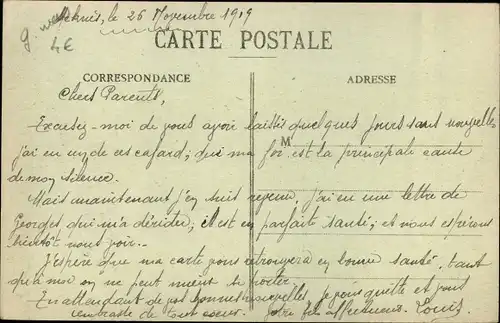 le 26 Novembre 1919
4€
CARTE POSTALE
CORRESPONDANCE
ADRESSE
Chers Parents,
Excusez-moi de vous avoir laissés quelques jours sans nouvelles
M
j'ai eu un de ces cafard; qui ma foi est la principale cause
de mon silence.
Mais maintenant j'en suit revenu, j'ai eu une lettre de
Georges qui m'a déridé; il est en parfait santé; et nous espérons
bientôt nous voir.
J'espère que ma carte vous retrouvera en bonne santé, tant
qu'à moi on ne peut mieux se porter.
En attendant de vos bonnes nouvelles je vous quitte et vous
embrasse de tout coeur. Votre fils affectueux. Louis.